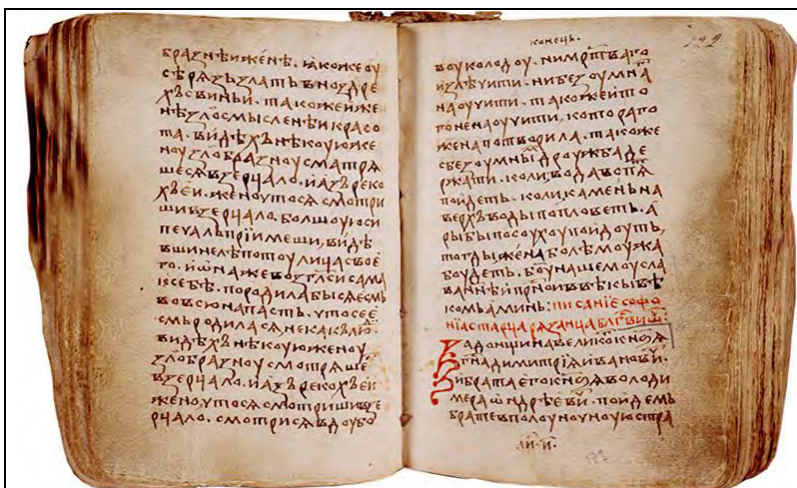 бразнѣи женѣ. ꙗкоже оу
сѣрѧзь златъ в ноздре
хъ свиньи. такоже и же
нѣ зло смысленѣи красо
та. видѣхъ нѣкоую же
ноу злобразноу сматрѧ
шесѧ в зерчало. и азъ реко
хъ еи. жено что сѧ смотри
ши в зерчало. болшоую си
печаль прїимеши, видѣ
вши нелѣпотоу лица свое
го. и ѡна же возгл͠си сама
к себѣ. породила бы сѧ есмь
во всю напасть. что се е
смь родиласѧ некакъ ли.
видѣхъ нѣкоую женоу
злобразноу смотрѧше
в зерчало. и азъ рекохъ еи
жено, что сѧ смотриши в зе
рчало. смотрисѧ въ доубо
конець.
122
воу колодоу. ни мр͠тваго
излѣчити. ни безоумна
наоучити. такоже и то
го не наоучити, которагo
жена потворила. такоже
с безоумны дроужба де
ржати. коли вода вспѧ
поидеть. коли камень на
верхъ воды попловеть. а
рыбы посоухоу поидоуть,
тогды жена болѣ моужа
боудеть. б͠оу нашемоу сла
ва н͠нѣ и пр͠но и в вѣкы вѣ
комъ аминь: писанїе софо
нїа старца рѧзанца бл͠гви ѡ͠
задонщина великог͠ кн͠зѧ
г͠на димитрїѧ иванови͠.
и брата его кн͠зѧ володи
мера ѡндрѣеви͠. поидемь
брате в полоуноуноую стра